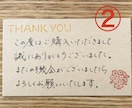 ②
THANK YOU
この度はご購入いただきまして
誠にありがとうございました。
またの機会がございましたら
よろしくお願いいたします。